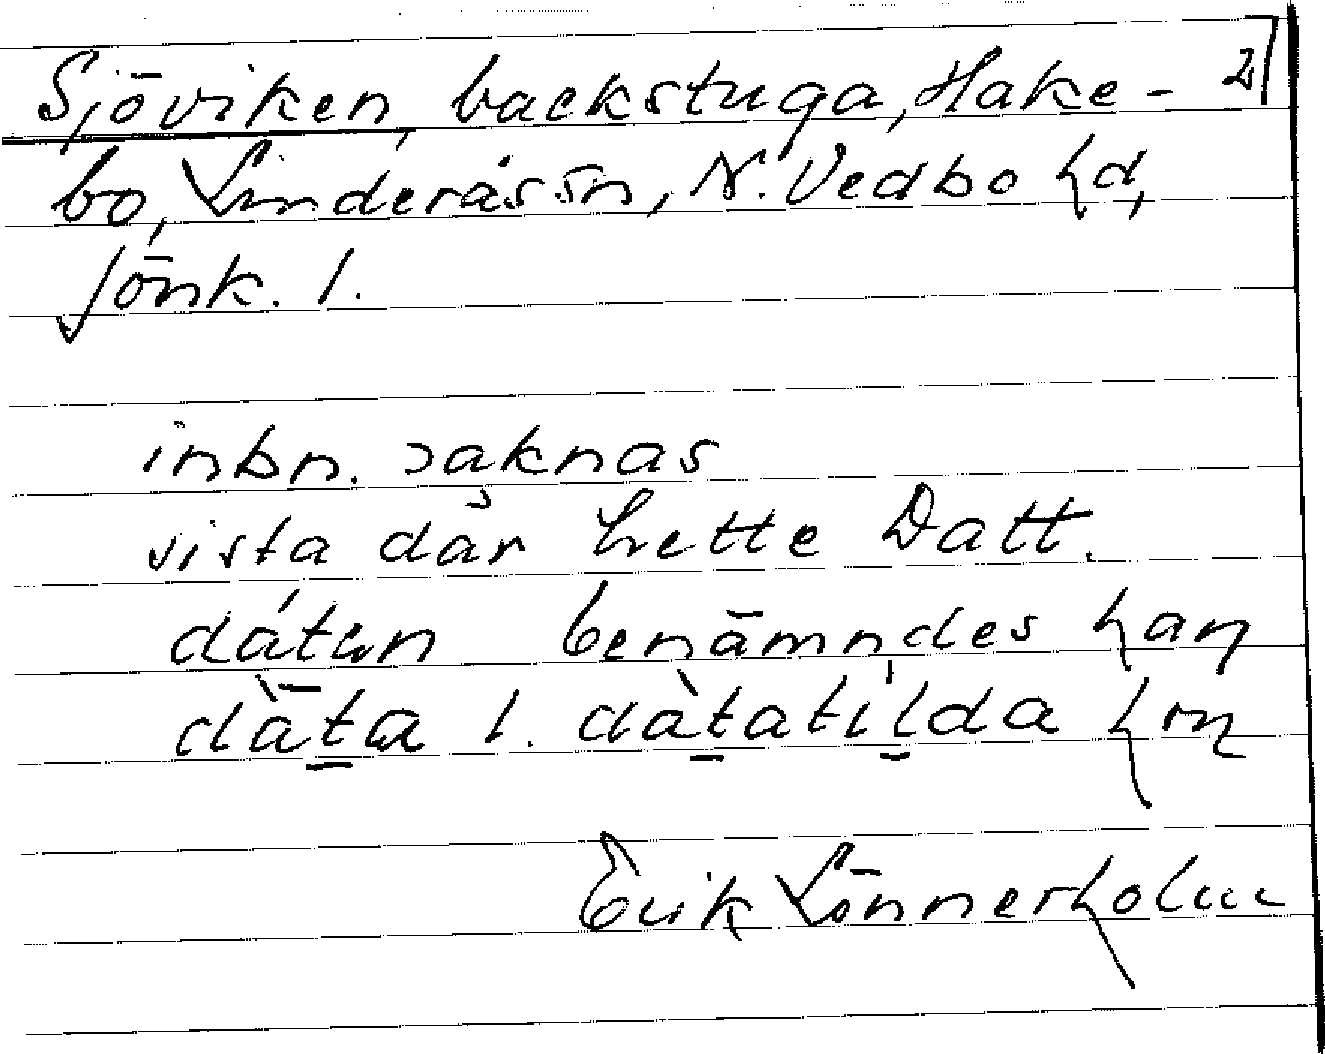 Sjöviken, backstuga, Hake- 2/
bo, Linderås sn, N. Vedbo hd,
Jönk. l.
inbn. saknas
sista där hette Datt.
dátan benämndes han
dàta l. dàtatilda hon
Erik Lönnerholm